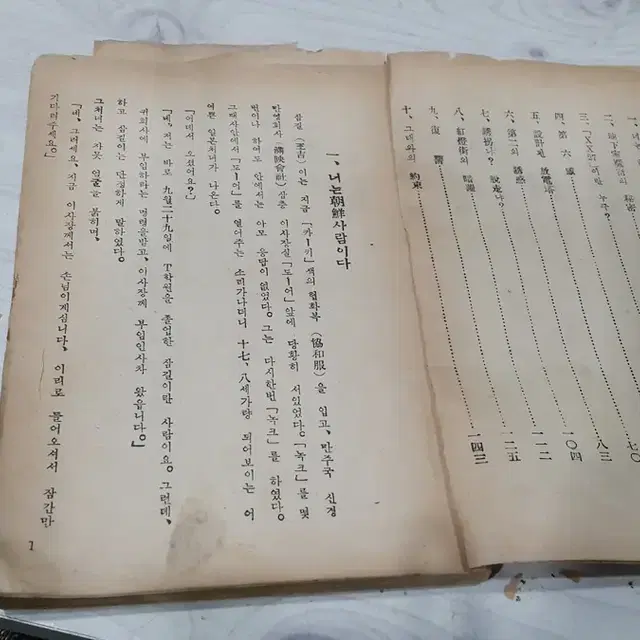 二、地下室의 秘密
三、이란 누구?
四、第六感
五、設計된 放電塔 七〇
六、第二의 誘惑 八三
七、誘拐냐? 脫走냐? 一〇四
八、紅燈街의 暗躍 一一二
九、復讐 一二五
十、그녀와의 約束 一四三
一、너는 朝鮮사람이다
삼길 이는 지금 「카ー키」 색의 협화복 (協和服) 을 입고, 만주국 신경
만영회사 (滿映會社) 삼층 이사장실 「도ー어」 앞에 당황히 서있었다. 「녹크」를 몇
번이나 하여도 안에서는 아모 응답이 없었다. 그는 다시한번 「녹크」를 하였다.
그때사 안에서 「도ー어」를 열어주는 소리가나더니 十七, 八세가량 되어보이는 어
여쁜 일본처녀가 나온다.
「어데서 오셨어요?」
「네, 저는 바로 九월二十九일에 T학원을 졸업한 삼길이란 사람이요. 그런데,
귀회사에 부임하라는 명령을받고, 이사장께 부임인사차 왔읍니다.」
하고 삼길이는 단정하게 말하였다.
그처녀는 자못 얼굴을 붉히며,
「네, 그러세요. 지금 이사장께서는 손님이계십니다. 이리로 들어오셔서 잠간만
기다려주세요.」
1